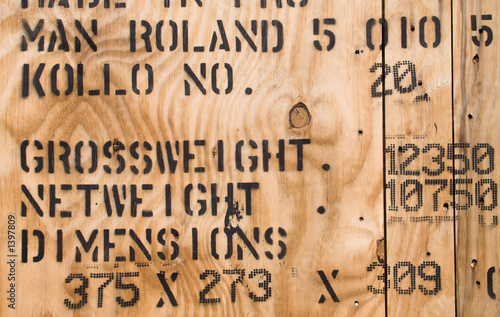 MAN ROLAND 5 010 5
KOLLO NO. 20.
GROSSWEIGHT. 12350
NETWEIGHT 10750
DIMENSIONS
375 X 273 X 309 C
Adobe Stock | #1397809